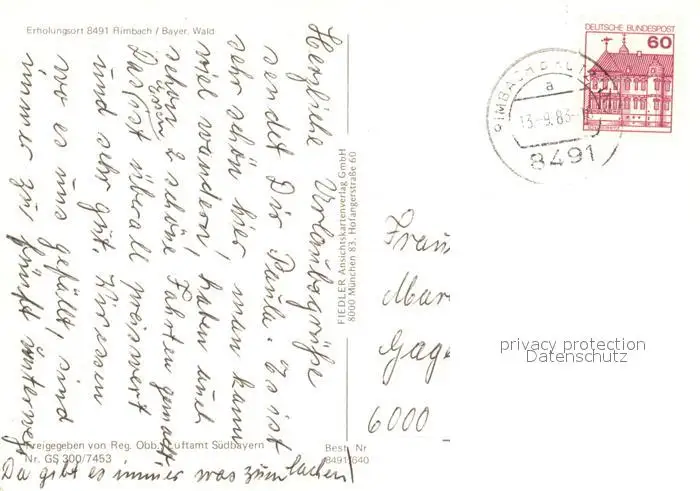 Erholungsort 8491 Rimbach / Bayer. Wald
Herzliche Urlaubsgrüße
sendet Dir Paula. Es ist
sehr schön hier, man kann
viel wandern, haben auch
schon 2 schöne Fahrten gemacht,
Das Essen ist überall preiswert
und sehr gut. Wir essen
wo es uns gefällt, sind
immer zu fünft unterwegs
Da gibt es immer was zum lachen!
Freigegeben von Reg. Obb. Luftamt Südbayern
Nr. GS 300/7453
Best. Nr
8491/640
FIEDLER Ansichtskartenverlag GmbH
8000 München 83, Hofangerstraße 60
DEUTSCHE BUNDESPOST
60
RIMBACH B KÖTZ
a
13.-9.83
8491
Frau
Mar
Gag
6000
privacy protection
Datenschutz